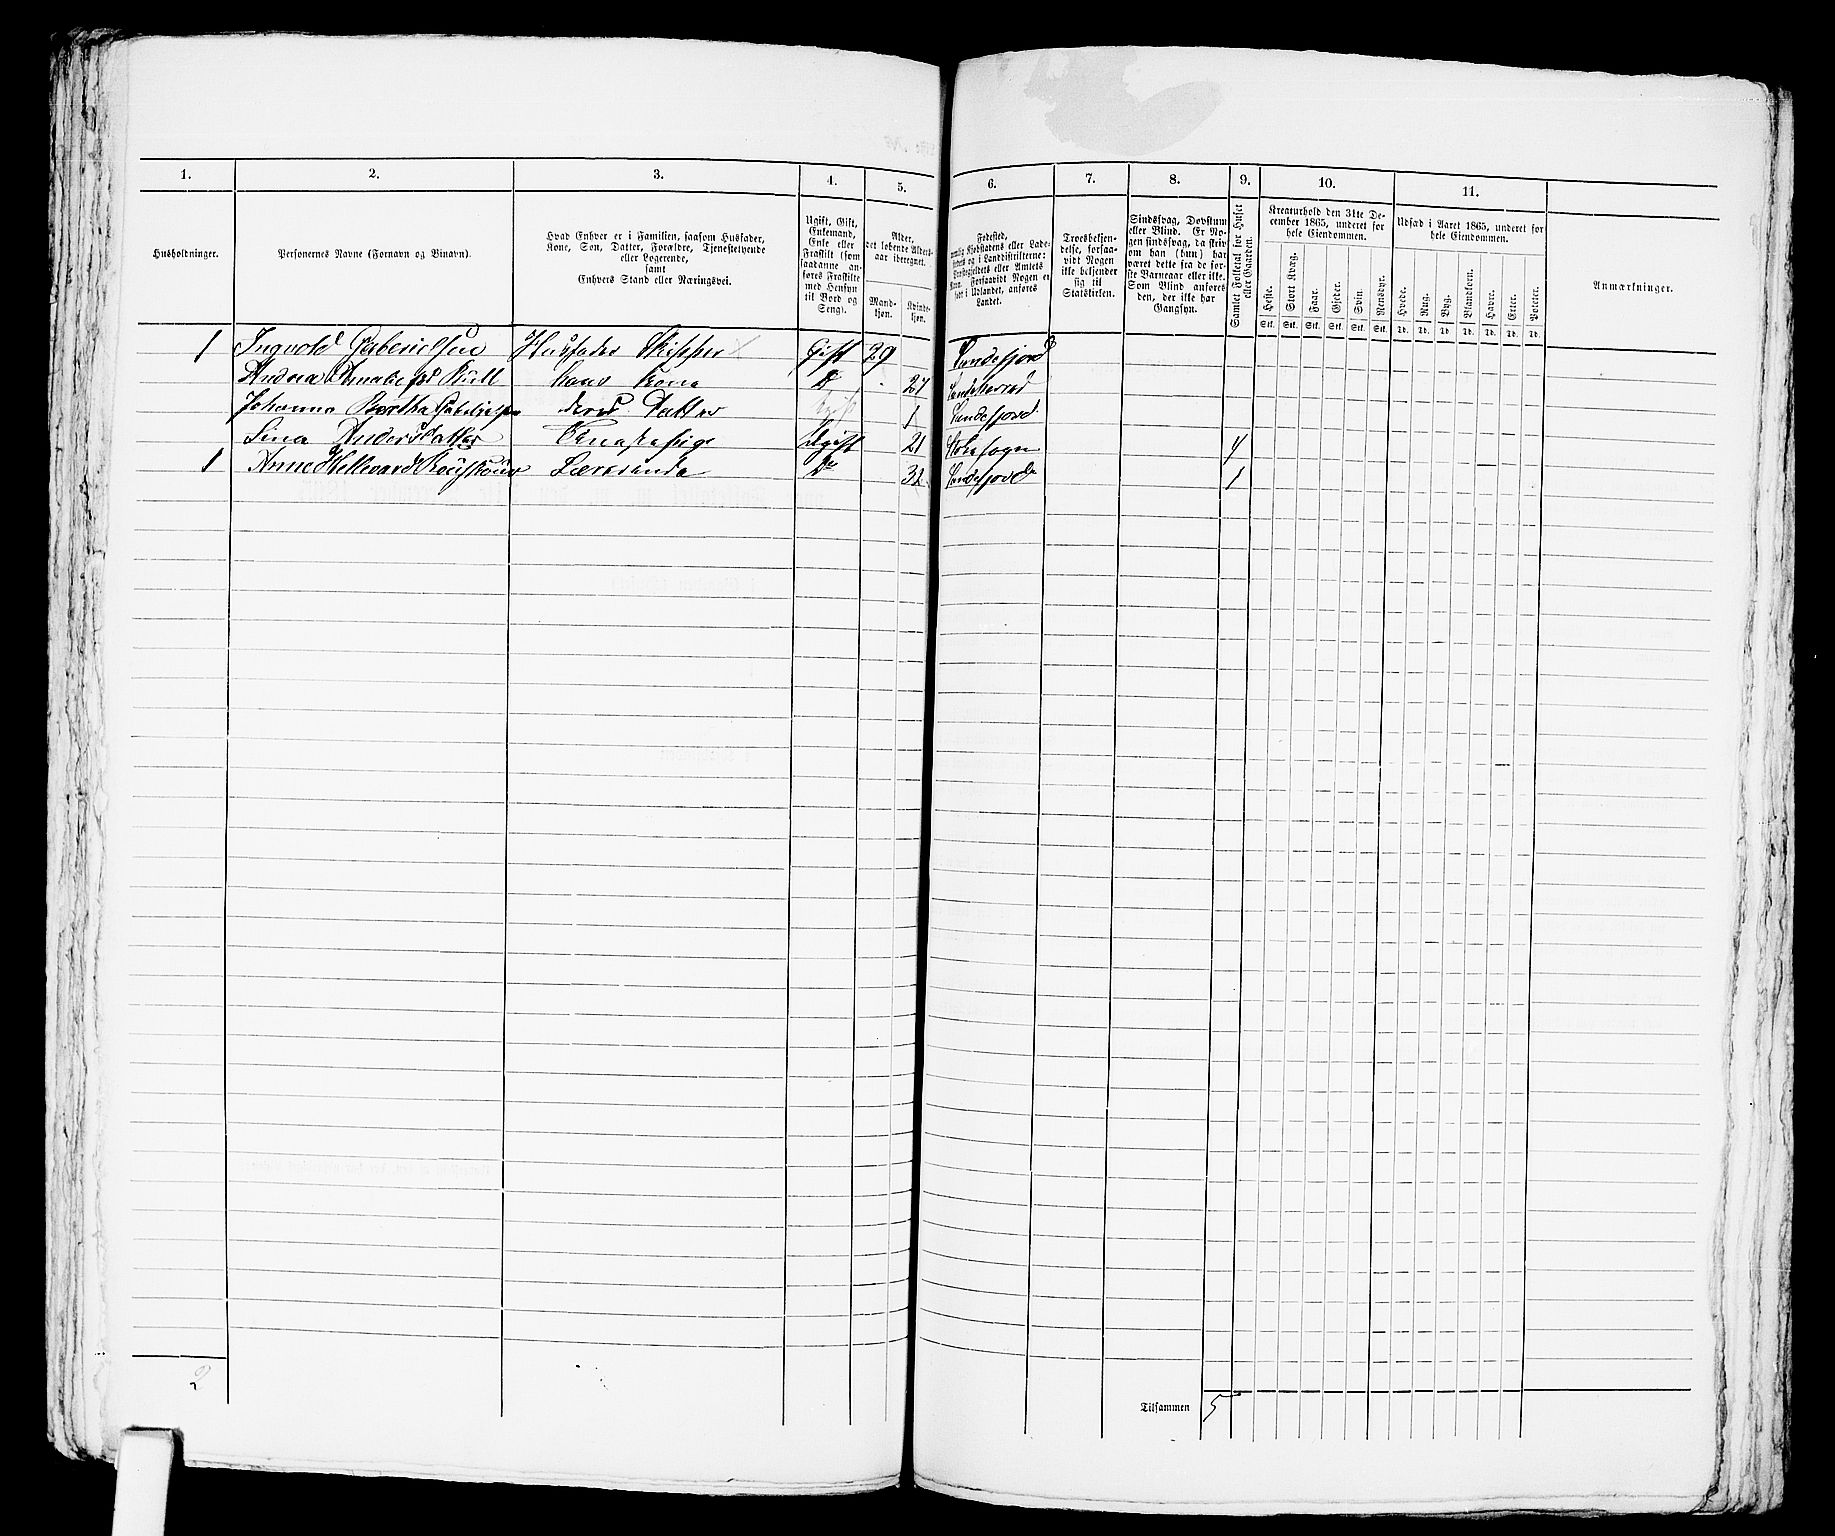 1. 2. 3. 4. 5. 6. 7. 8. 9. 10. 11.
Husholdninger.
Personernes Navne (Fornavn og Binavn).
Hvad Enhver er i Familien, saasom Husfader,
Kone, Søn, Datter, Forældre, Tjenestetyende
eller Logerende,
samt
Enhvers Stand eller Næringsvei.
Ugift, Gift,
Enkemand,
Enke eller
Fraskilt (som
saadanne an-
føres Fraskilte
med Hensyn
til Bord og
Seng).
Alder,
det løbende Alders-
aar iberegnet.
Mand-
kjøn.
Kvinde-
kjøn.
Fødested,
Landet.
Troesbekjen-
delse, forsaa-
vidt Nogen
ikke bekjender
sig til
Statskirken.
Sindssvag, Døvstum
eller Blind. Er No-
gen sindssvag, da skriv
om han (hun) har
været dette fra de før-
ste Barneaar eller ikke.
Som Blind anføres
den, der ikke har
Gangsyn.
Samlet Folketal for Huset
eller Gaarden.
Kreaturhold den 31te De-
cember 1865, underet for
hele Eiendommen.
Heste. Stort Kvæg. Faar. Gjeder. Svin. Rensdyr.
Stk. Stk. Stk. Stk. Stk. Stk.
Udsæd i Aaret 1865, underet for
hele Eiendommen.
Hvede. Rug. Byg. Blandkorn. Havre. Erter. Poteter.
Td. Td. Td. Td. Td. Td. Td.
Anmærkninger.
1 Ingvold Gabrielsen Husfader Skipper Gift 29 Sandefjord
Andrea Amalie Bull hans Kone Do 27 Sandeherred
Johanne Bertha Gabrielsen deres Datter Ugift 1 Sandefjord
Sina Andersdatter Tjenestepige Ugift 21 Stokesogn 4
1 Anne Lærerinde Do 32 Sandefjord 1
2
Tilsammen 5